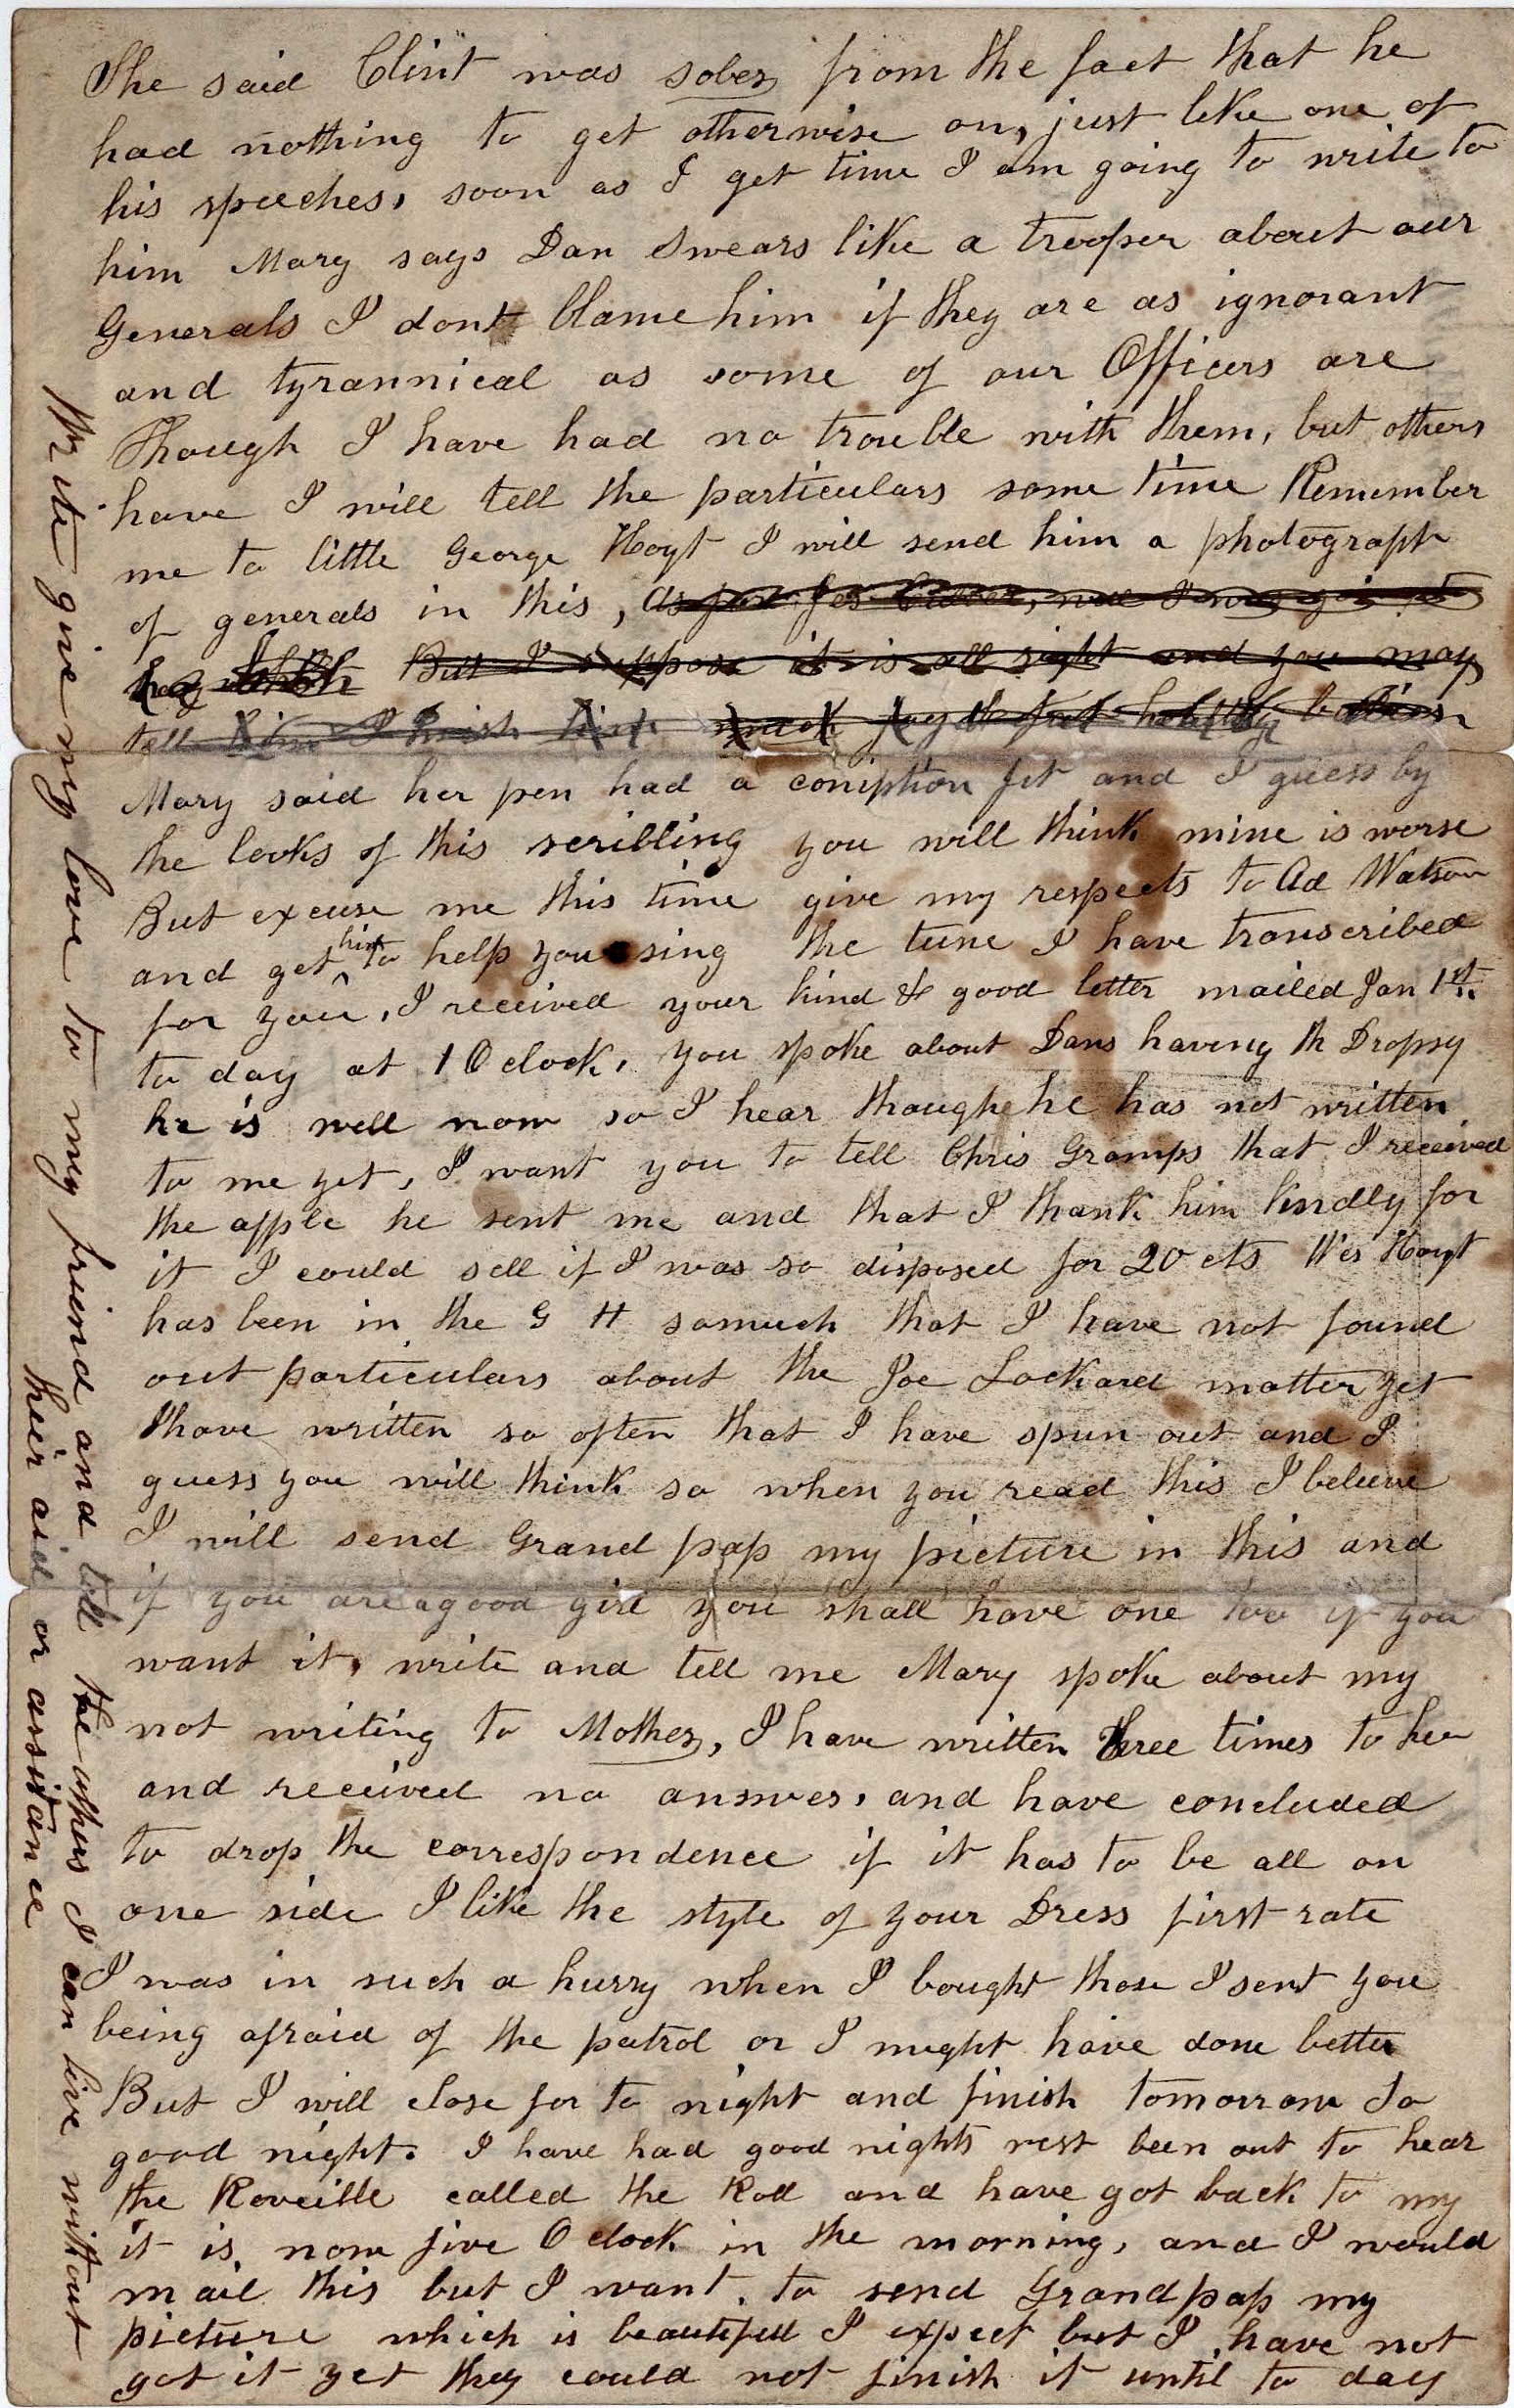 She said Clint was sober from the fact that he
had nothing to get otherwise on, just like one of
his speeches, soon as I get time I am going to write to
him Mary says Dan swears like a trooper about our
Generals I dont blame him if they are as ignorant
and tyrannical as some of our Officers are
Though I have had no trouble with them, but others
have I will tell the particulars some time Remember
me to little George Hoyt I will send him a photograph
of generals in this, As for
But I suppose it is all right and you may
tell him I wish him much joy
Mary said her pen had a coniption fit and I guess by
the looks of this scribling you will think mine is worse
But excuse me this time give my respects to Ad Watson
and get him to help you sing the tune I have transcribed
for you, I received your kind & good letter mailed Jan 1st
to day at 1 O clock, you spoke about Dans having th Dropsy
he is well now so I hear though he has not written
to me yet, I want you to tell Chris Gramps that I received
the apple he sent me and that I thank him kindly for
it I could sell if I was so disposed for 20 cts Wes Hoyt
has been in the G H somuch that I have not found
out particulars about the Joe Lockard matter yet
I have written so often that I have spun out and I
guess you will think so when you read this I beleive
I will send Grand pap my picture in this and
if you are a good girl you shall have one too if you
want it, write and tell me Mary spoke about my
not writing to Mother, I have written three times to her
and received no answer, and have concluded
to drop the correspondence if it has to be all on
one side I like the style of your Dress first rate
I was in such a hurry when I bought those I sent you
being afraid of the patrol or I might have done better
But I will close for to night and finish tomorrow So
good night. I have had good nights rest been out to hear
the Reveille called the Roll and have got back to my
it is now five O clock in the morning, and I would
mail this but I want to send Grandpap my
picture which is beautifull I expect but I have not
got it yet they could not finish it until to day
Write give my love to my friend and tell the others I can live without
their aid or assistance